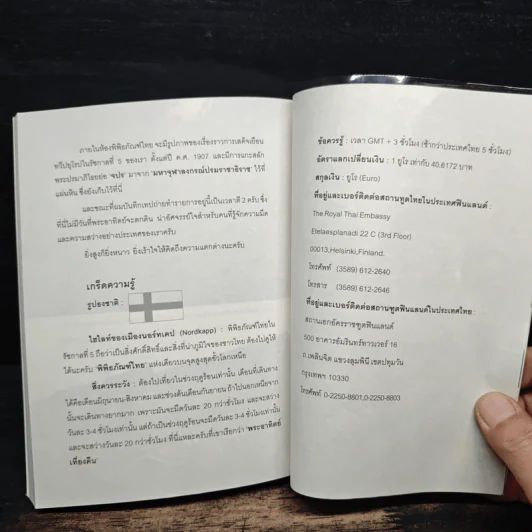 ภายในห้องพิพิธภัณฑ์ไทย จะมีรูปภาพของเรื่องราวการเสด็จเยือน
ทวีปยุโรปในรัชกาลที่ 5 ของเรา ตั้งแต่ปี ค.ศ. 1907 และมีการแกะสลัก
พระปรมาภิไธยย่อ 'จปร' มาจาก 'มหาจุฬาลงกรณ์ปรมราชาธิราช' ไว้ที่
แผ่นหิน ซึ่งยังเก็บไว้ที่นี่
และขณะที่ผมบันทึกเทปถ่ายทำรายการอยู่นี้เป็นเวลาตี 2 ครับ ซึ่ง
ที่นี่ไม่มีวันที่พระอาทิตย์จะตกดิน น่าอัศจรรย์ใจสำหรับคนที่รู้จักความมืด
และความสว่างอย่างประเทศของเราครับ
ยิ่งสูงก็ยิ่งหนาว ยิ่งเร้าใจให้คิดถึงความแตกต่างนะครับ
เกร็ดความรู้
รูปธงชาติ :
ไฮไลท์ของเมืองนอร์ทเคป (Nordkapp) : พิพิธภัณฑ์ไทยใน
รัชกาลที่ 5 ถือว่าเป็นสิ่งศักดิ์สิทธิ์และสิ่งที่น่าภูมิใจของชาวไทย ต้องไปดูให้
ได้นะครับ 'พิพิธภัณฑ์ไทย' แห่งเดียวบนจุดสูงสุดขั้วโลกเหนือ
สิ่งควรระวัง : ต้องไปเที่ยวในช่วงฤดูร้อนเท่านั้น เดือนที่เดินทาง
ได้คือเดือนมิถุนายน-สิงหาคม และช่วงต้นเดือนกันยายน ถ้าไปนอกเหนือจาก
นั้นจะเดินทางยากมาก เพราะมันจะมืดวันละ 20 กว่าชั่วโมง และจะสว่าง
วันละ 3-4 ชั่วโมงเท่านั้น แต่ถ้าเป็นช่วงฤดูร้อนจะมืดวันละ 3-4 ชั่วโมงเท่านั้น
และจะสว่างวันละ 20 กว่าชั่วโมง ที่นี่แหละครับที่เขาเรียกว่า 'พระอาทิตย์
เที่ยงคืน'
ข้อควรรู้ : เวลา GMT + 3 ชั่วโมง (ช้ากว่าประเทศไทย 5 ชั่วโมง)
อัตราแลกเปลี่ยนเงิน : 1 ยูโร เท่ากับ 40.6172 บาท
สกุลเงิน : ยูโร (Euro)
ที่อยู่และเบอร์ติดต่อสถานทูตไทยในประเทศฟินแลนด์ :
The Royal Thai Embassy
Etelaesplanadi 22 C (3rd Floor)
00013,Helsinki,Finland.
โทรศัพท์ (3589) 612-2640
โทรสาร (3589) 612-2646
ที่อยู่และเบอร์ติดต่อสถานทูตฟินแลนด์ในประเทศไทย :
สถานเอกอัครราชทูตฟินแลนด์
500 อาคารอัมรินทร์ทาวเวอร์ 16
ถ.เพลินจิต แขวงลุมพินี เขตปทุมวัน
กรุงเทพฯ 10330
โทรศัพท์ 0-2250-8801,0-2250-8803